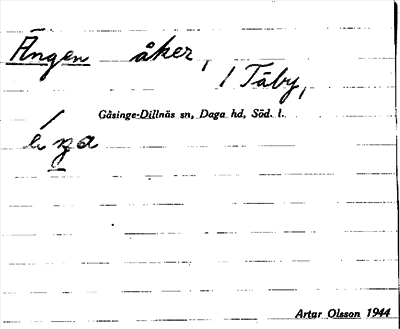 Ängen åker, / Täby,
Gåsinge-Dillnäs sn, Daga hd, Söd. l.
Artur Olsson 1944